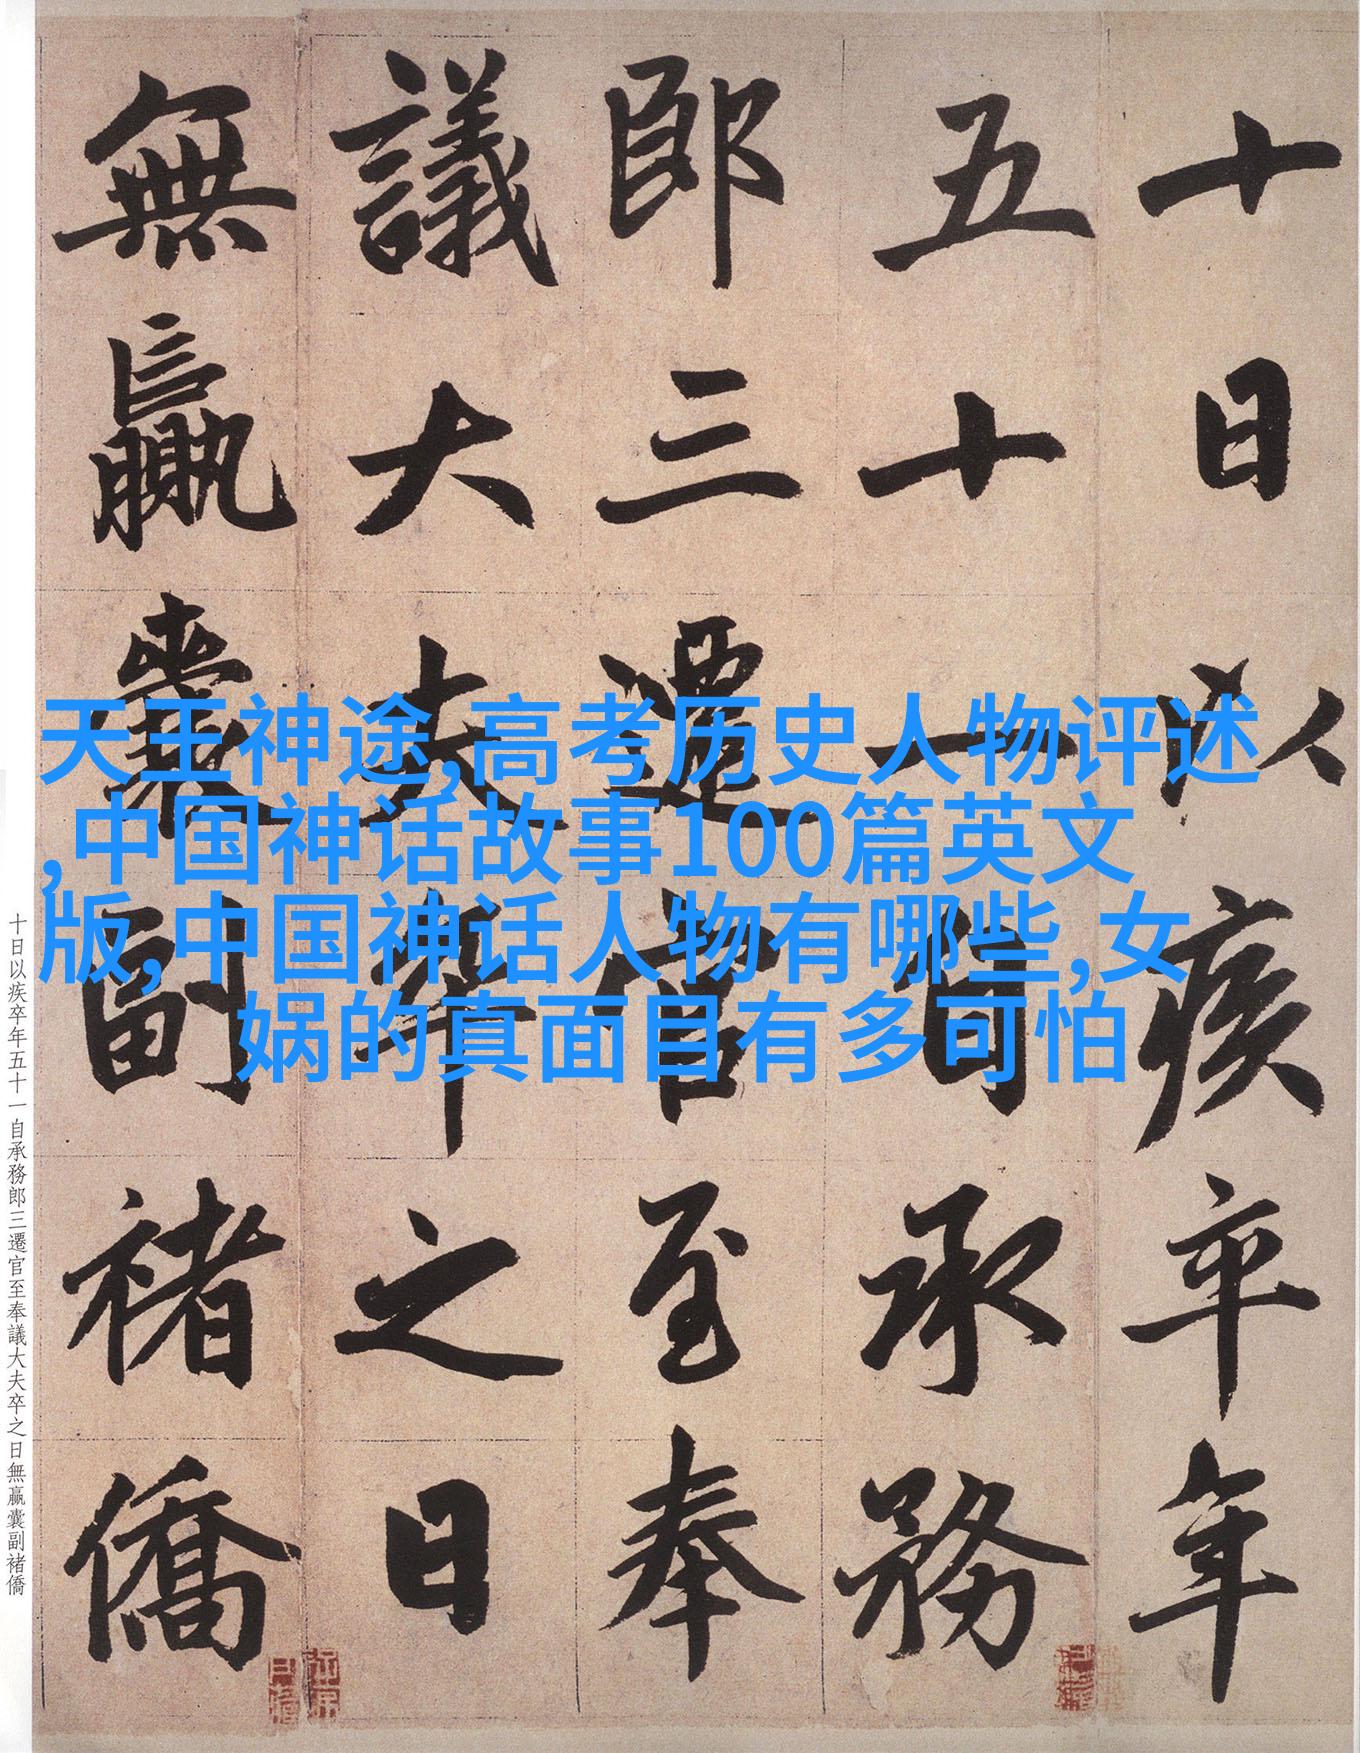 十日以疾卒年
五十一自承務
郎三遷官至奉
議大夫卒之日
無贏囊副褚僑
十日以疾卒年五十一自承務郎三遷官至奉議大夫卒之日無贏囊副褚僑
天王神途,高考历史人物评述
,中国神话故事100篇英文
版,中国神话人物有哪些,女
娲的真面目有多可怕